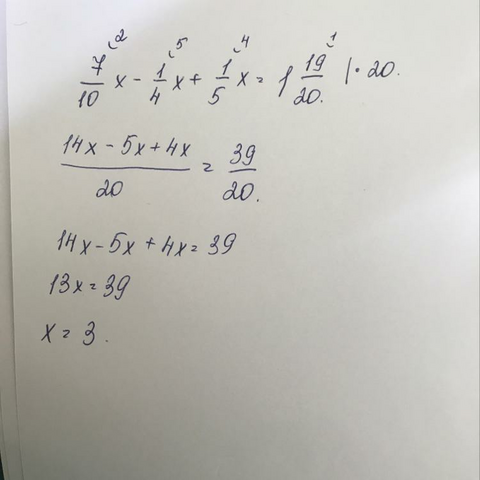 7/10 x - 1/4 x + 1/5 x = 1 19/20. | · 20.
2 5 4 1
14x - 5x + 4x / 20 = 39/20.
14x - 5x + 4x = 39
13x = 39
x = 3.